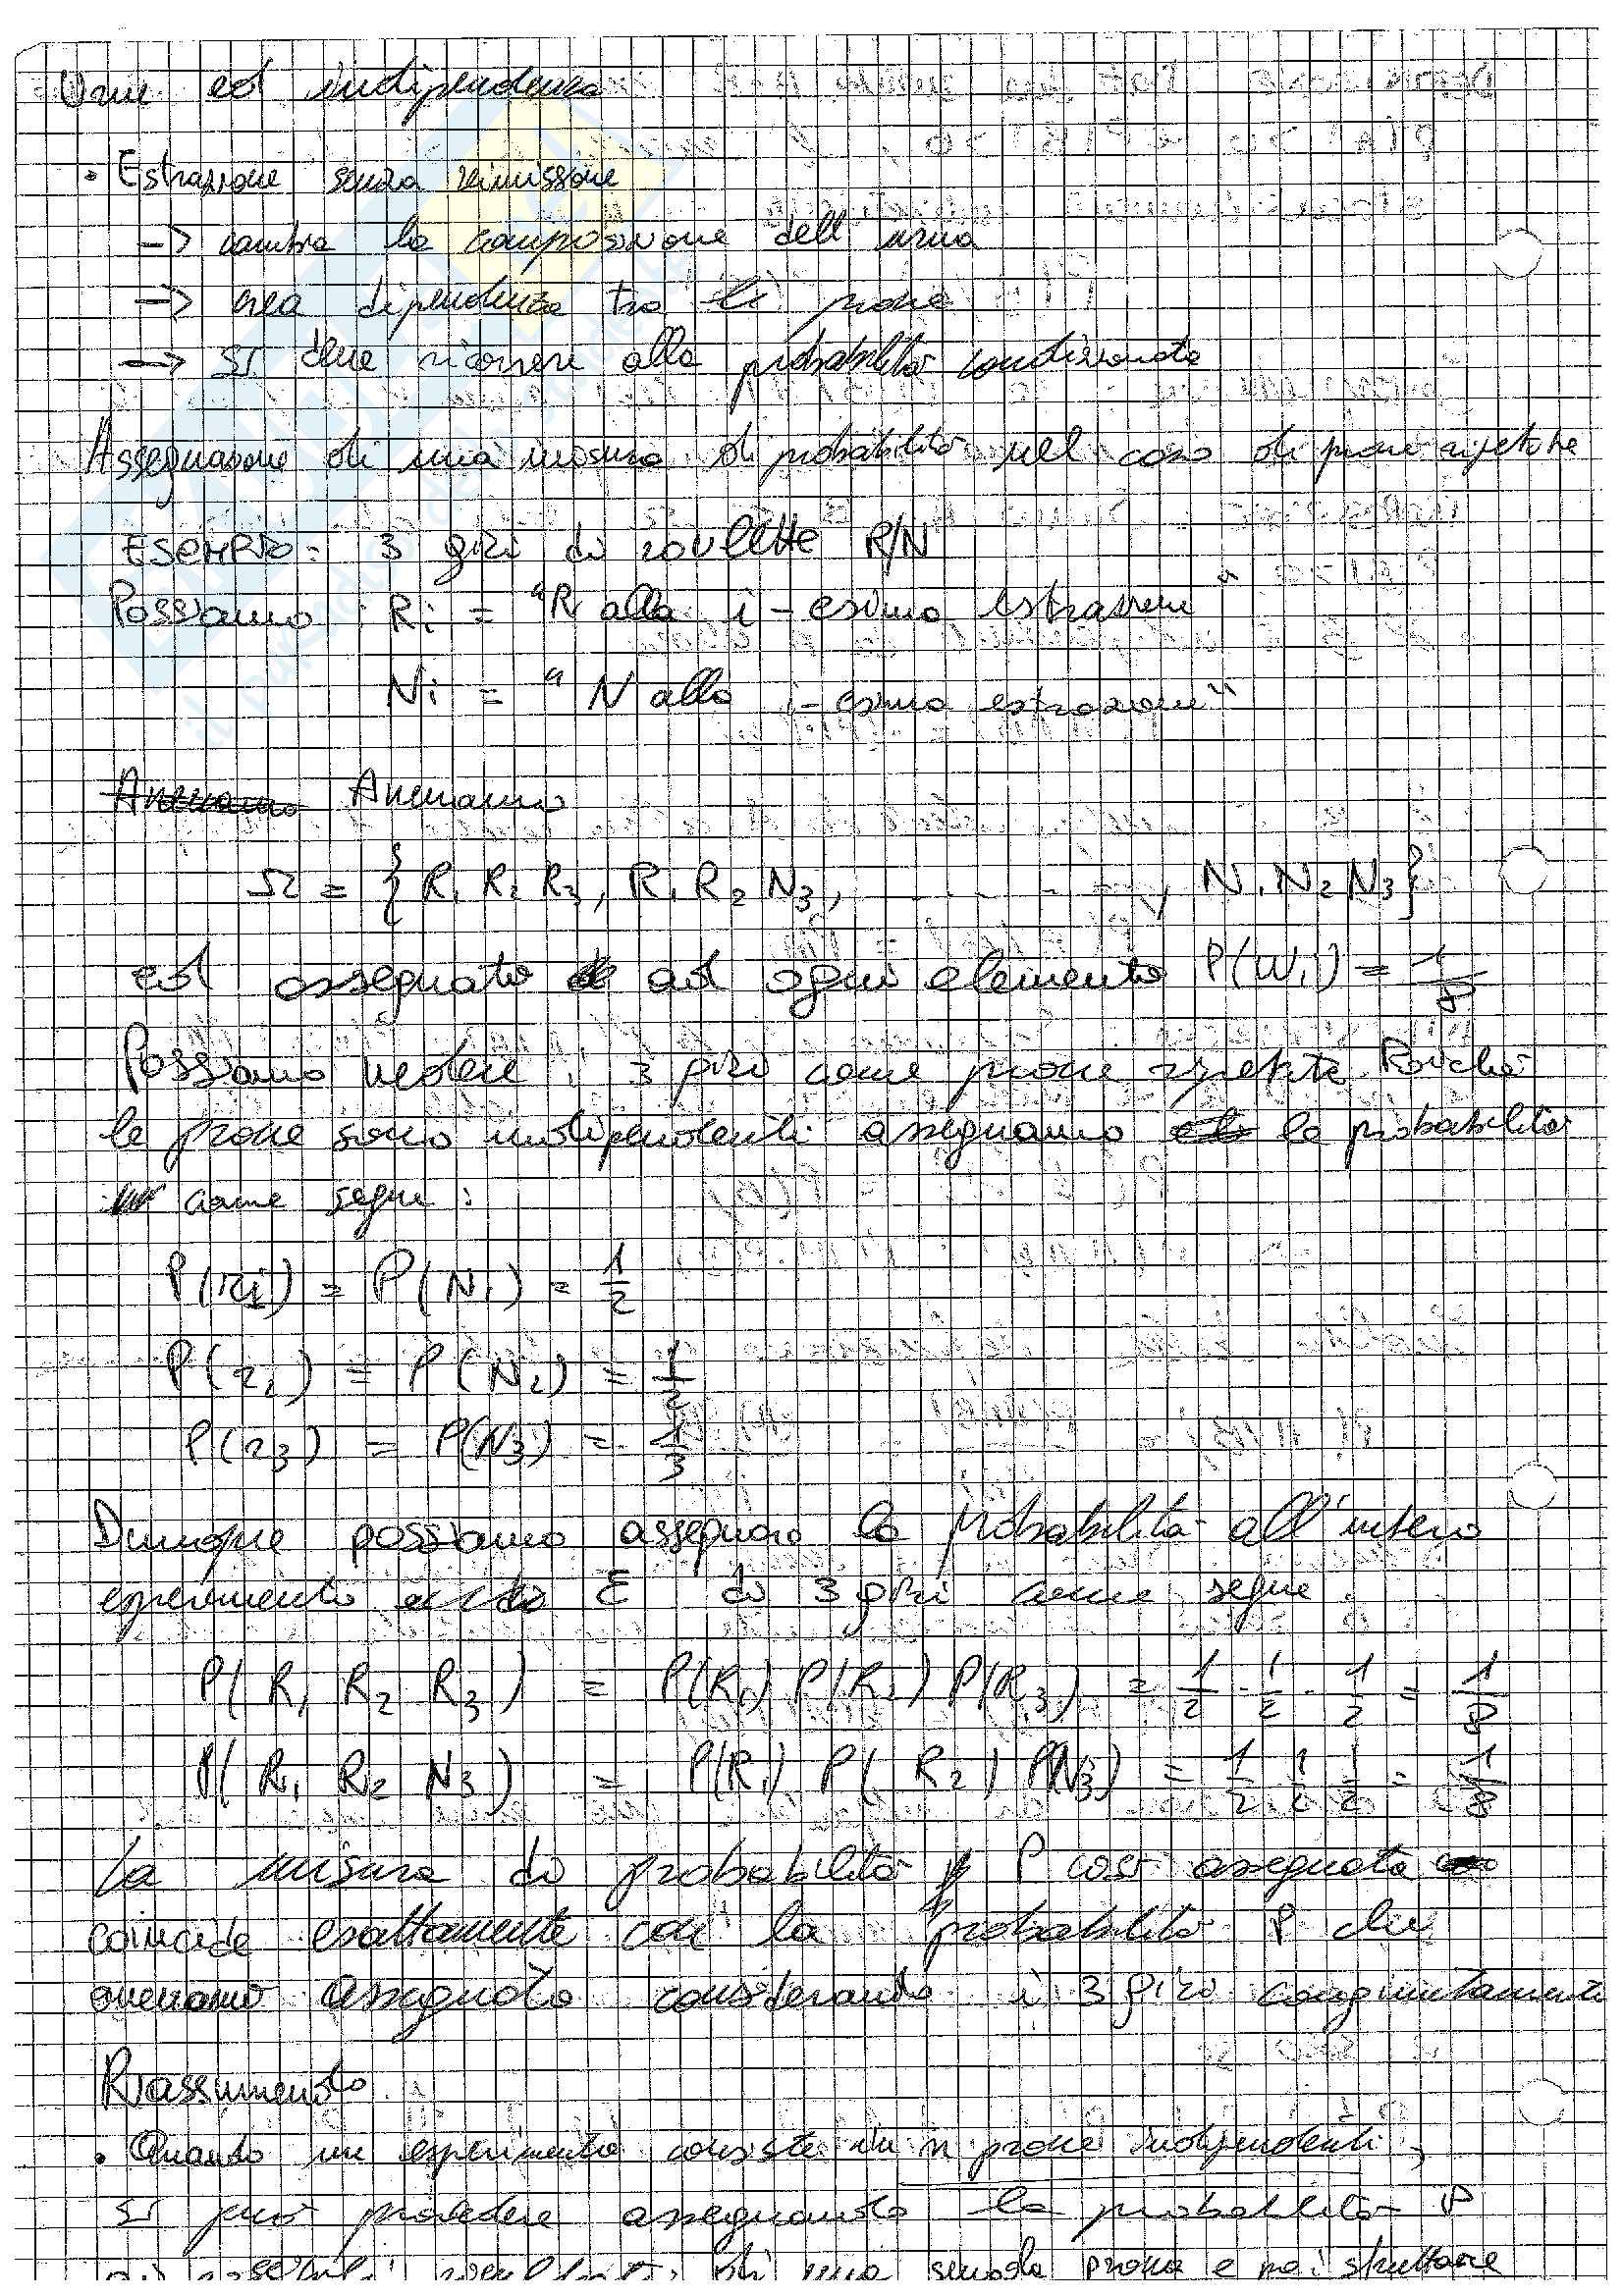 Urne ed indipendenza
• Estrazione senza reimissione
-> cambia la composizione dell'urna
-> crea dipendenza tra le prove
-> Si deve ricorrere alla probabilità condizionata
Assegnazione di una misura di probabilità nel caso di prove ripetute
ESEMPIO: 3 giri di roulette R/N
Possiamo Ri = "R alla i-esima estrazione"
Ni = "N alla i-esima estrazione"
Avevamo
Ω = { R1 R2 R3, R1 R2 N3, . . . . . , N1 N2 N3}
ed assegnato ad ogni elemento P(Wi) = 1/8
Possiamo vedere i 3 giri come prove ripetute. Poichè
le prove sono indipendenti assegnamo la probabilità
come segue:
P(R1) = P(N1) = 1/2
P(R2) = P(N2) = 1/2
P(R3) = P(N3) = 1/3
Dunque possiamo assegnare la probabilità all'intero
esperimento E di 3 giri come segue
P( R1 R2 R3 ) = P(R1) P(R2) P(R3) = 1/2 · 1/2 · 1/2 = 1/8
P( R1 R2 N3 ) = P(R1) P( R2 ) P(N3) = 1/2 1/2 1/2 = 1/8
La misura di probabilità P così assegnata
coincide esattamente con la probabilità P che
avevamo assegnato considerando i 3 giri congiuntamente
Riassumendo
• Quando un esperimento consiste in n prove indipendenti,
si può procedere assegnando la probabilità P
di una singola prova e poi sfruttare